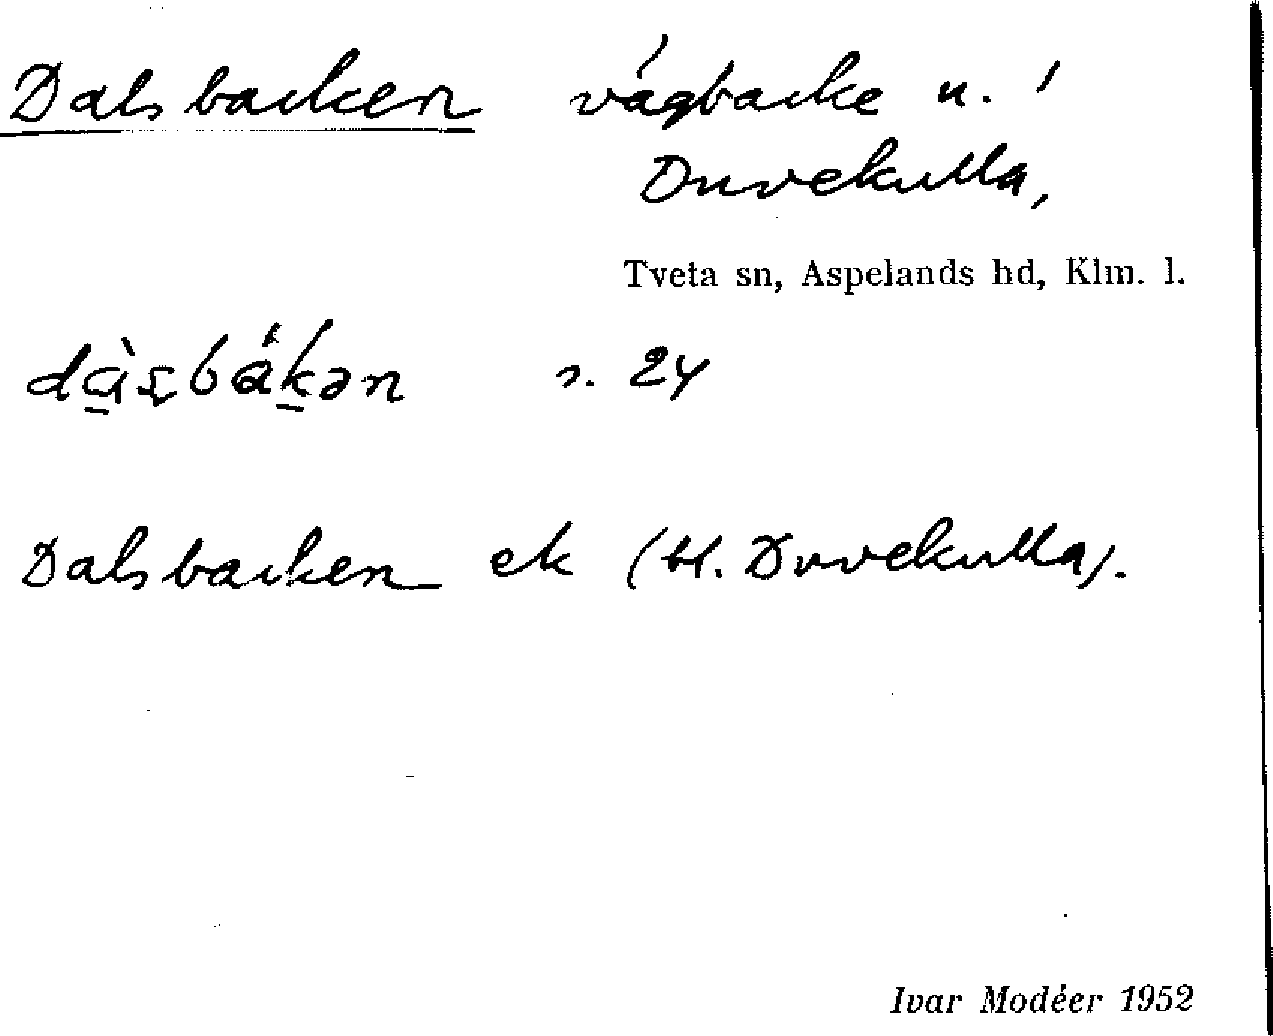 Dalsbacken vägbacke u. i
Duvekulla,
Tveta sn, Aspelands hd, Klm. l.
s. 24
Dalsbacken ek (H. Duvekulla).
Ivar Modéer 1952